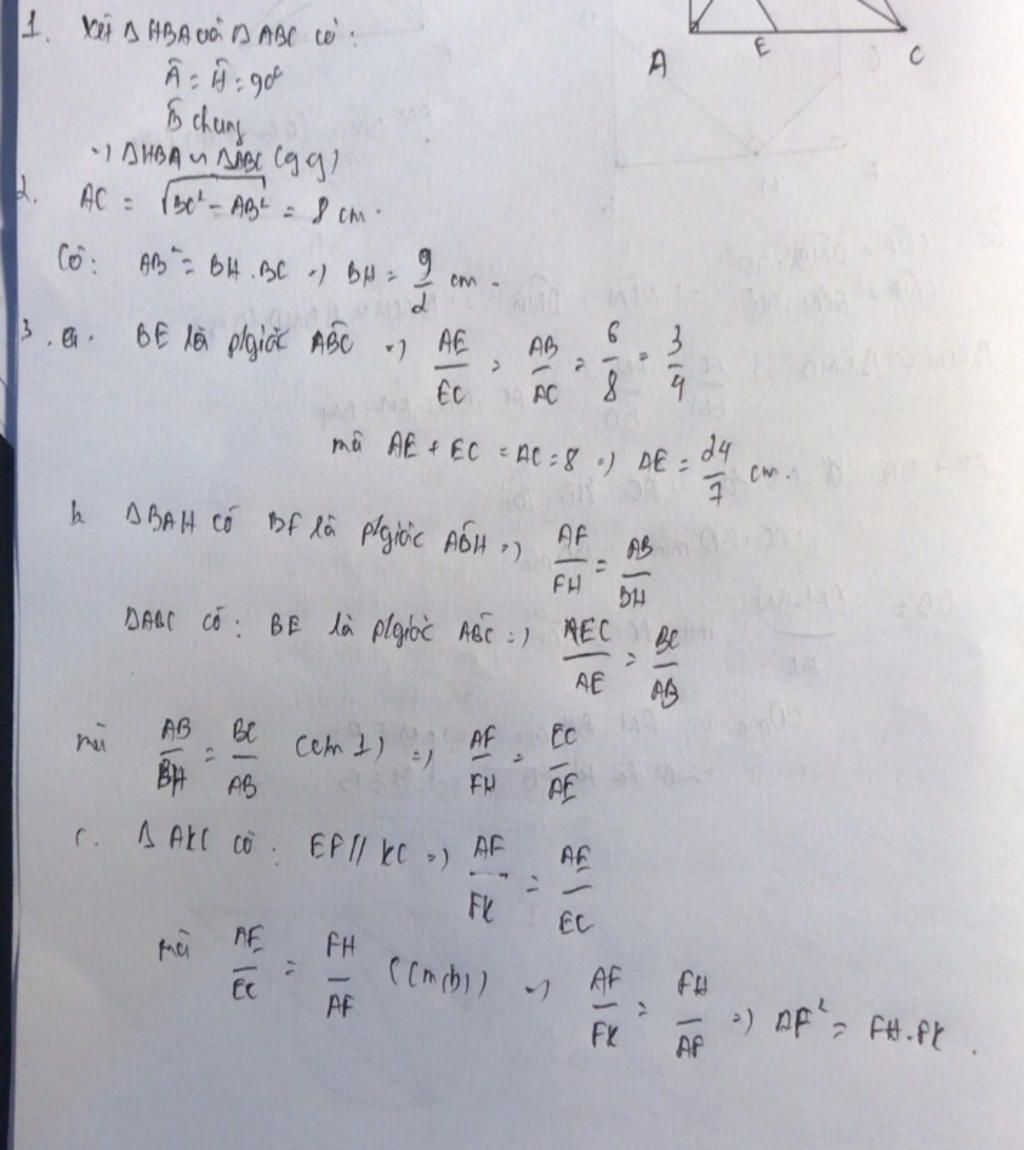 A E C
1. Xét Δ HBA và Δ ABC có:
Â = Ĥ = 90°
B̂ chung
=> ΔHBA ∽ ΔABC (g g)
2. AC = √(BC² - AB²) = 8 cm.
Có: AB² = BH . BC => BH = 9/2 cm.
3. a. BE là p/giác AB̂C => AE/EC = AB/AC = 6/8 = 3/4
mà AE + EC = AC = 8 => AE = 24/7 cm.
b ΔBAH có BF là p/giác AB̂H => AF/FH = AB/BH
ΔABC có: BE là p/giác AB̂C => AEC/AE = BC/AB
mà AB/BH = BC/AB (cm 1) => AF/FH = EC/AE
c. Δ AKC có: EF // KC => AF/FK = AE/EC
mà AE/EC = FH/AF (cm (b)) => AF/FK = FH/AF => AF² = FH.FK.